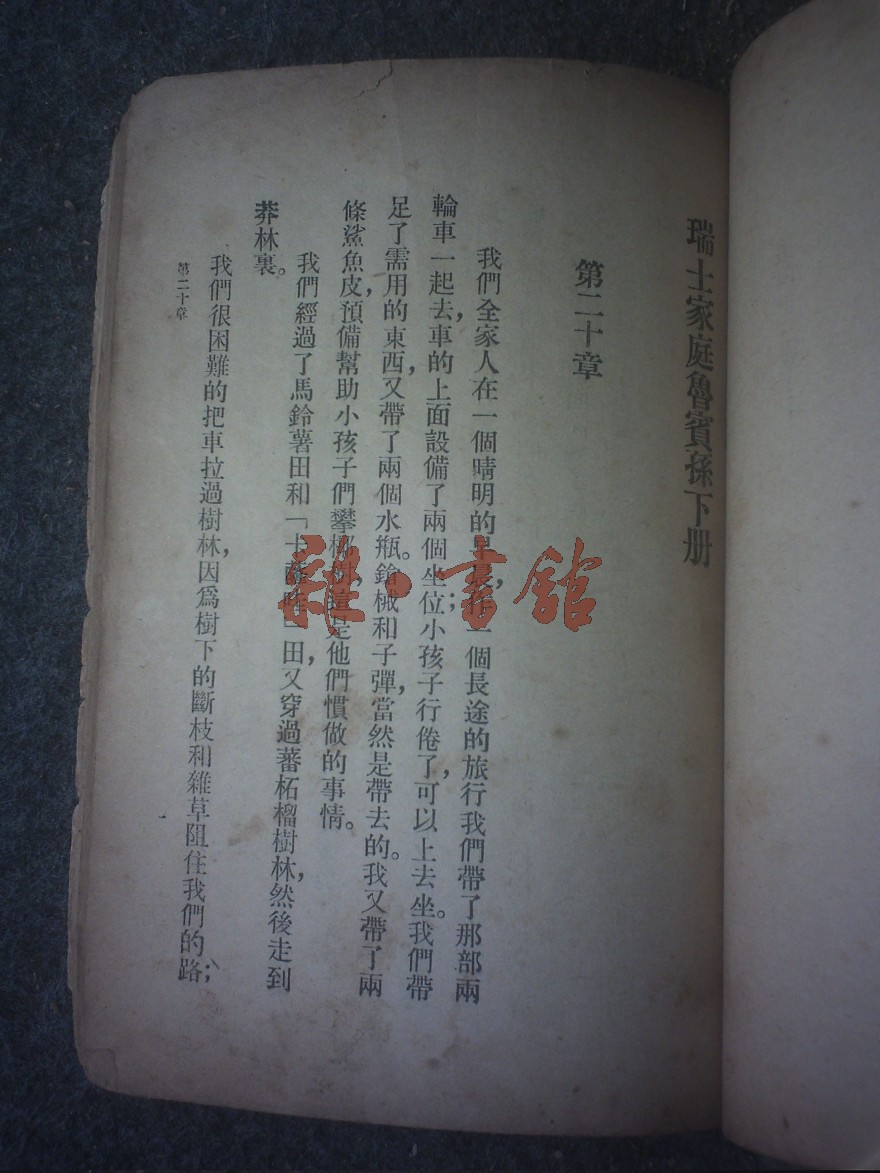 瑞士家庭魯賓孫下册
第二十章
我們全家人在一個晴明的早晨,作一個長途的旅行;我們帶了那部兩
輪車一起去,車的上面設備了兩個坐位,小孩子行倦了,可以上去坐。我們帶
足了需用的東西,又帶了兩個水瓶。鎗械和子彈,當然是帶去的。我又帶了兩
條鯊魚皮,預備幫助小孩子們攀椰樹,這是他們慣做的事情。
我們經過了馬鈴薯田和「卡薩 」田,又穿過蕃柘榴樹林,然後走到
莽林裏。
我們很困難的把車拉過樹林,因爲樹下的斷枝和雜草阻住我們的路;
第二十章
雜·書舘